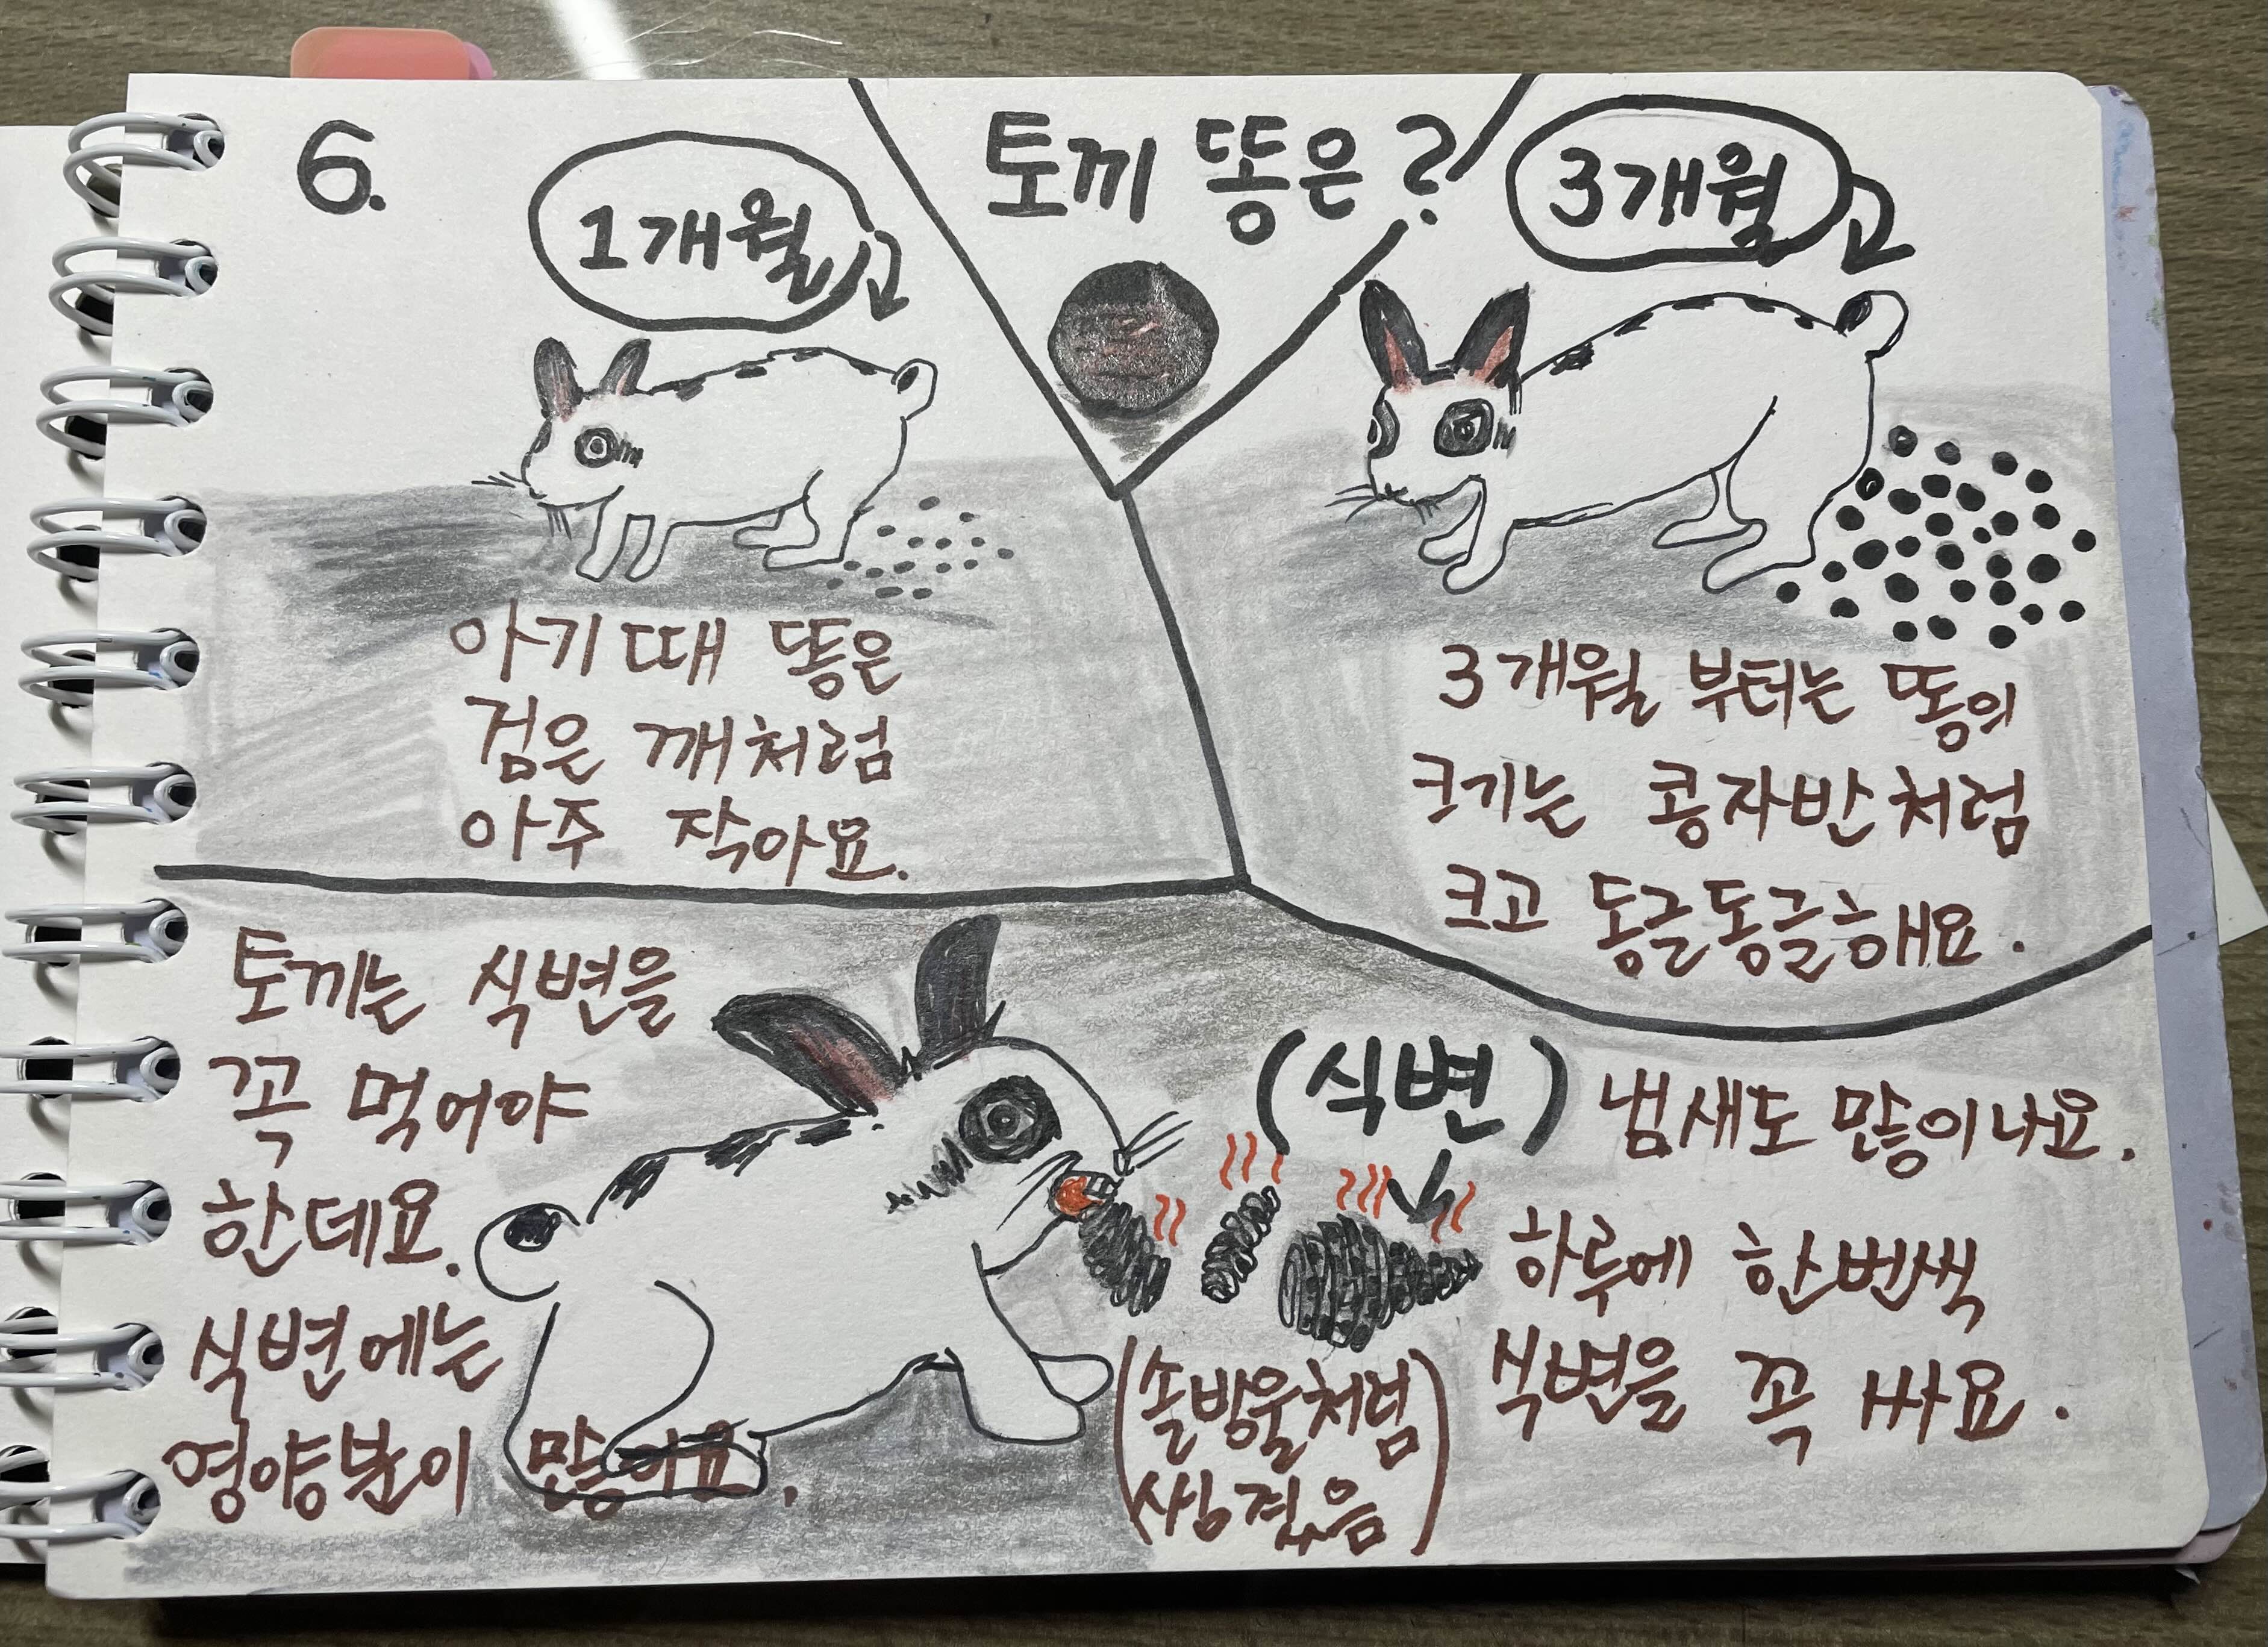 6.
토끼 똥은?
1개월
아기때 똥은
검은 깨처럼
아주 작아요.
3개월
3개월 부터는 똥의
크기는 콩자반처럼
크고 동글동글해요.
토끼는 식변을
꼭 먹어야
한데요.
식변에는
영양분이 많아요.
(식변)
(솔방울처럼
생겼음)
냄새도 많이나요.
하루에 한번씩
식변을 꼭 싸요.